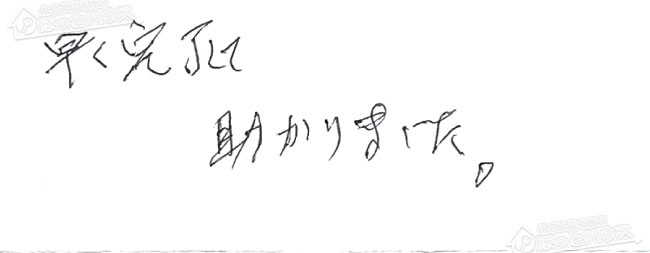 早く完了して
助かりました。